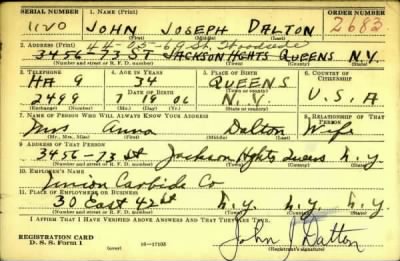 SERIAL NUMBER 1. NAME (Print) ORDER NUMBER
1120 JOHN JOSEPH DALTON 2683
(First) (Middle) (Last)
2. ADDRESS (Print) 44-05-69 St. Woodside
3456-73 ST JACKSON HGHTS QUEENS N.Y.
(Number and street or R. F. D. number) (Town) (County) (State)
3. TELEPHONE 4. AGE IN YEARS 5. PLACE OF BIRTH 6. COUNTRY OF CITIZENSHIP
HA 9 34 QUEENS
DATE OF BIRTH (Town or county)
2499 7 19 06 N.Y. U.S.A
(Exchange) (Number) (Mo.) (Day) (Yr.) (State or country)
7. NAME OF PERSON WHO WILL ALWAYS KNOW YOUR ADDRESS 8. RELATIONSHIP OF THAT PERSON
Mrs Anna Dalton Wife
(Mr., Mrs., Miss) (First) (Middle) (Last)
9. ADDRESS OF THAT PERSON
3456-73 St Jackson Hghts Queens N.Y.
(Number and street or R. F. D. number) (Town) (County) (State)
10. EMPLOYER'S NAME
Union Carbide Co
11. PLACE OF EMPLOYMENT OR BUSINESS
30 East 42 St N.Y. N.Y. N.Y.
(Number and street or R. F. D. number) (Town) (County) (State)
I AFFIRM THAT I HAVE VERIFIED ABOVE ANSWERS AND THAT THEY ARE TRUE.
REGISTRATION CARD
D. S. S. Form 1 (over) 16-17105
John J Dalton
(Registrant's signature)